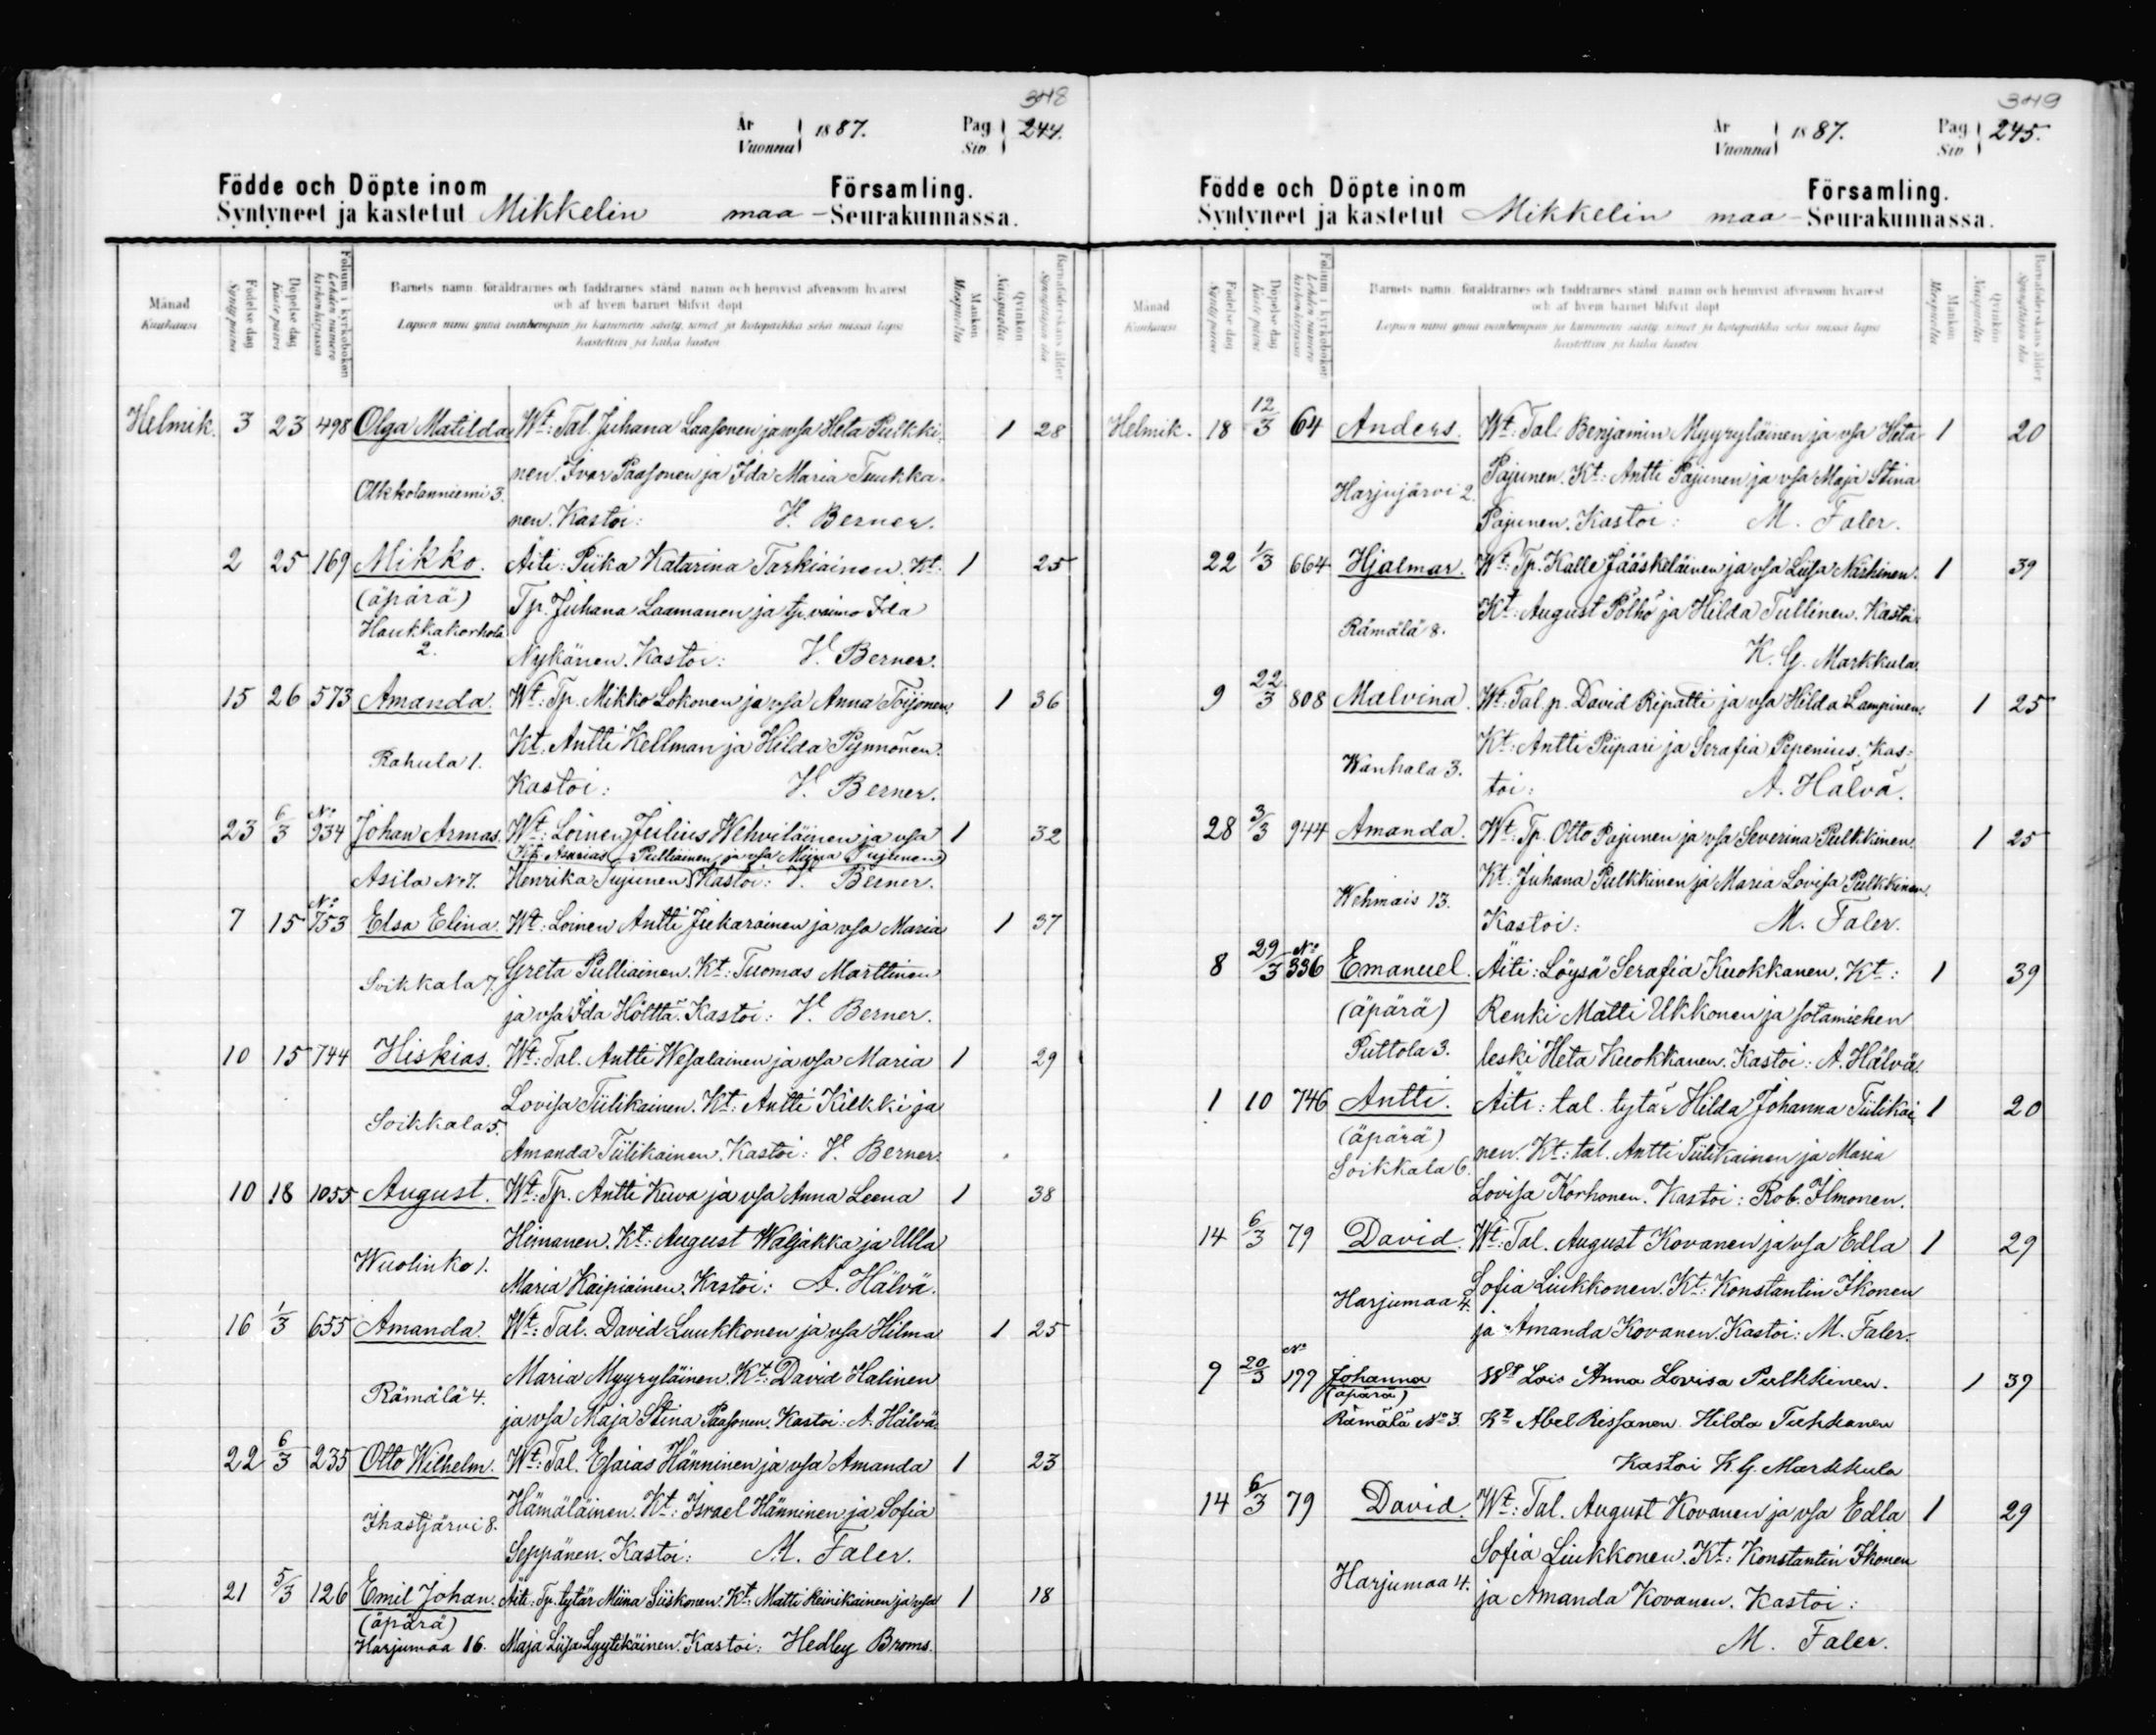 348
År Vuonna 1887. Pag Siv. 244.
Födde och Döpte inom Församling.
Syntyneet ja kastetut Mikkelin maa-Seurakunnassa.
Månad Kuukausi
Födelse dag Syntypäivä
Döpelse dag Kaste päivä
Folium i kyrkoboken Lehden numero kirkonkirjassa
Barnets namn, föräldrarnes och faddrarnes stånd, namn och hemvist äfvensom hvarest
och af hvem barnet blifvit döpt
Lapsen nimi ynnä vanhempain ja kummein sääty, nimet ja kotopaikka sekä missä lapsi
kastettiin ja kuka kastoi
Mankön Miespuolta
Qvinkön Naispuolta
Barnaföderskans ålder Synnyttäjän ikä
Helmik. 3 23 498 Olga Matilda Wt: Tal. Juhana Laasonen ja vsa Heta Pulkki- 1 28
nen. Ivar Paasonen ja Ida Maria Tuukka-
Olkkolanniemi 3.
nen. Kastoi: V. Berner.
2 25 169 Mikko. Äiti: Piika Katarina Tarkiainen. Kt: 1 25
(äpärä) Tp. Juhana Laamanen ja tp. vaimo Ida
Haukkakorhola
2. Nykänen. Kastoi: V. Berner.
15 26 573 Amanda. Wt: Tp. Mikko Lokonen ja vsa Anna Toijonen. 1 36
Kt: Antti Hellman ja Hilda Pynnönen.
Rahula 1.
Kastoi: V. Berner.
23 6/3 No 934 Johan Armas. Wt: Loinen Julius Wehviläinen ja vsa 1 32
Kt: Asarias Pulliainen ja vsa Miina Tujunen
Asila No 7. Henrika Tujunen Kastoi: V. Berner.
7 15 No 753 Elsa Elina. Wt: Loinen Antti Jukarainen ja vsa Maria 1 37
Soikkala 7. Greta Pulliainen. Kt: Tuomas Marttinen
ja vsa Ida Hölttä. Kastoi: V. Berner.
10 15 744 Hiskias. Wt: Tal. Antti Wesalainen ja vsa Maria 1 29
Lovisa Tiilikainen. Kt: Antti Kilkki ja
Soikkala 5.
Amanda Tiilikainen. Kastoi: V. Berner.
10 18 1055 August. Wt: Tp. Antti Kuva ja vsa Anna Leena 1 38
Himanen. Kt: August Waljakka ja Ulla
Wuolinko 1.
Maria Kaipiainen. Kastoi: A. Hälvä.
16 1/3 655 Amanda. Wt: Tal. David Luukkonen ja vsa Hilma 1 25
Maria Myyryläinen. Kt: David Halinen
Rämälä 4.
ja vsa Maja Stina Paasonen. Kastoi: A. Hälvä.
22 6/3 235 Otto Wilhelm. Wt: Tal. Esaias Hänninen ja vsa Amanda 1 23
Hämäläinen. Kt: Israel Hänninen ja Sofia
Ihastjärvi 8.
Seppänen. Kastoi: M. Faler.
21 5/3 126 Emil Johan. Äiti: Tp. tytär Miina Siiskonen. Kt: Matti Heinikainen ja vsa 1 18
(äpärä)
Harjumaa 16. Maja Liisa Lyytikäinen. Kastoi: Hedley Broms.
349
År Vuonna 1887. Pag Siv 245.
Födde och Döpte inom Församling.
Syntyneet ja kastetut Mikkelin maa-Seurakunnassa.
Månad Kuukausi
Födelse dag Syntypäivä
Döpelse dag Kaste päivä
Folium i kyrkoboken Lehden numero kirkonkirjassa
Barnets namn, föräldrarnes och faddrarnes stånd, namn och hemvist äfvensom hvarest
och af hvem barnet blifvit döpt
Lapsen nimi ynnä vanhempain ja kummein sääty, nimet ja kotopaikka sekä missä lapsi
kastettiin ja kuka kastoi
Mankön Miespuolta
Qvinkön Naispuolta
Barnaföderskans ålder Synnyttäjän ikä
Helmik. 18 12/3 64 Anders. Wt: Tal. Benjamin Myyryläinen ja vsa Heta 1 20
Pajunen. Kt: Antti Pajunen ja vsa Maja Stina
Harjujärvi 2.
Pajunen. Kastoi: M. Faler.
22 1/3 664 Hjalmar. Wt: Tp. Kalle Jääskeläinen ja vsa Liisa Närhinen. 1 39
Kt: August Pölhö ja Hilda Tullinen. Kastoi:
Rämälä 8.
K. G. Markkula.
9 22/3 808 Malvina. Wt: Tal. p. David Ripatti ja vsa Hilda Lampinen. 1 25
Kt: Antti Piipari ja Serafia Pepenius. Kas-
Wanhala 3.
toi: A. Hälvä.
28 3/3 944 Amanda. Wt: Tp. Otto Pajunen ja vsa Severina Pulkkinen. 1 25
Kt: Juhana Pulkkinen ja Maria Lovisa Pulkkinen.
Wehmais 13.
Kastoi: M. Faler.
8 29/3 No 336 Emanuel. Äiti: Löysä Serafia Kuokkanen. Kt: 1 39
(äpärä) Renki Matti Ukkonen ja sotamiehen
Puttola 3. leski Heta Kuokkanen. Kastoi: A. Hälvä.
1 10 746 Antti. Äiti: tal. tytär Hilda Johanna Tiilikai- 1 20
(äpärä)
Soikkala 6. nen. Kt: tal. Antti Tiilikainen ja Maria
Lovisa Korhonen. Kastoi: Rob. Ilmonen.
14 6/3 79 David. Wt: Tal. August Kovanen ja vsa Edla 1 29
Sofia Liukkonen. Kt: Konstantin Ikonen
Harjumaa 4.
ja Amanda Kovanen. Kastoi: M. Faler.
9 20/3 No 177 Johanna Wt Lois Anna Lovisa Pulkkinen. 1 39
(äpärä)
Rämälä No 3. Kt Abel Rissanen. Hilda Tuhkanen
Kastoi K. G. Markkula
14 6/3 79 David. Wt: Tal. August Kovanen ja vsa Edla 1 29
Sofia Liukkonen. Kt: Konstantin Ikonen
Harjumaa 4.
ja Amanda Kovanen. Kastoi:
M. Faler.